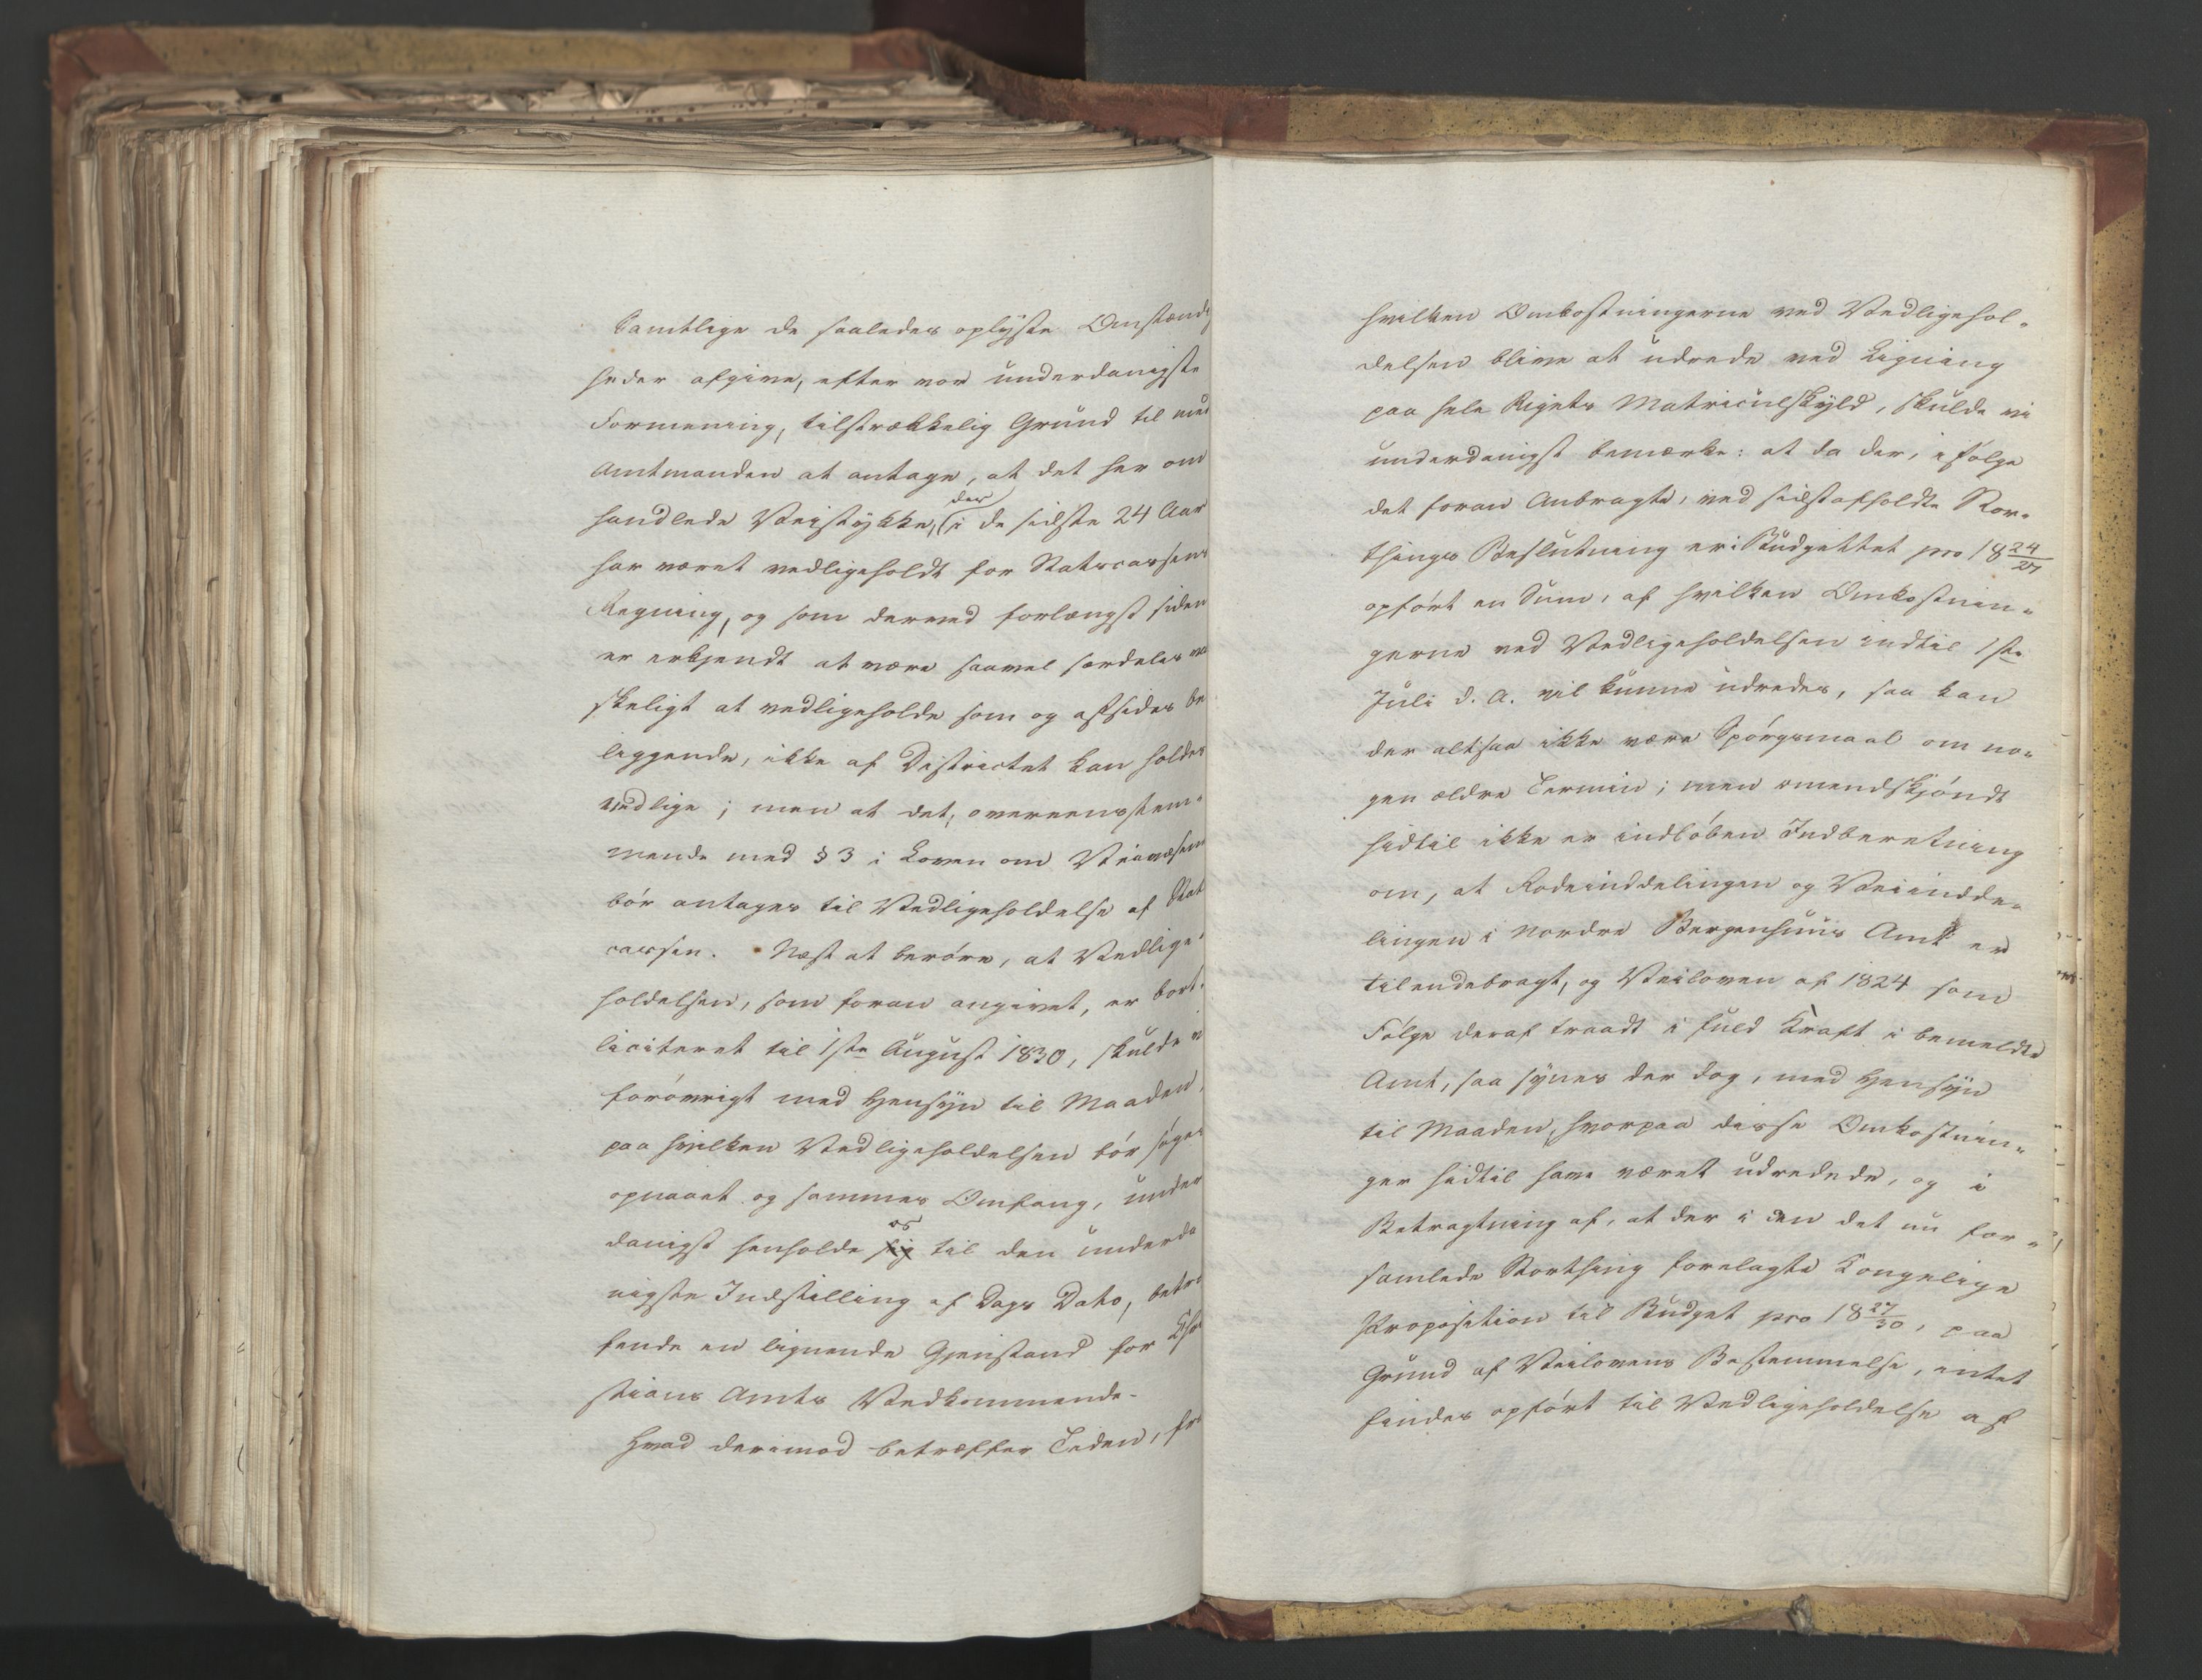 Samtlige de saaledes oplyste Omstænd
heder afgive, efter vor underdanigste
Formening, tilstrækkelig Grund til med
Amtmanden at antage, at det her om
handlede Veistykke, der i de sidste 24 Aar
har været vedligeholdt for Statscassens
Regning, og som derved forlængst siden
er erkjendt at være saavel særdeles va
skeligt at vedligeholde som og afsides be
liggende, ikke af Districtet kan holdes
vedlige; men at det, overeensstem-
mende med § 3 i Loven om Veivæsen
bör antages til Vedligeholdelse af Stat
cassen. Næst at beröre, at Vedlige-
holdelsen, som foran angivet, er bort-
liciteret til 1ste August 1830, skulde vi
foröwrigt med Hensyn til Maaden,
paa hvilken Vedligeholdelsen bör söges
opnaaet og sammes Omfang, under
danigst henholde sig os til den underda
nigste Indstilling af Dags Dato, betræ
fende en lignende Gjenstand for Chri
stians Amts Vedkommende.
Hvad derimod betræffer Tiden, fra
hvilken Omkostningerne ved Vedligehol-
delsen blive at udrede ved Ligning
paa hele Rigets Matriculskyld, skulde vi
underdanigst bemærke: at da der, i fölge
det foran Anbragte, ved sidstafholdte Stor-
things Beslutning er i Budgettet pro 18 24/27
opfört en Sum, af hvilken Omkostnin-
gerne ved Vedligeholdelsen indtil 1ste
Juli d. A. vil kunne udredes, saa kan
der altsaa ikke være Spörgsmaal om no-
gen ældre Termin; men omendskjöndt
hidtil ikke er indlöben Indberetning
om, at Rodeinddelingen og Veiindde-
lingen i Nordre Bergenhuus Amt er
tilendebragt, og Veiloven af 1824 som
Fölge deraf traadt i fuld Kraft i bemeldte
Amt, saa synes der dog, med Hensyn
til Maaden, hvorpaa disse Omkostnin-
ger hidtil have været udredede, og i
Betragtning af, at der i den det nu for-
samlede Storthing forelagte Kongelige
Proposition til Budget pro 18 27/30, paa
Grund af Veilovens Bestemmelse, intet
findes opfört til Vedligeholdelse af